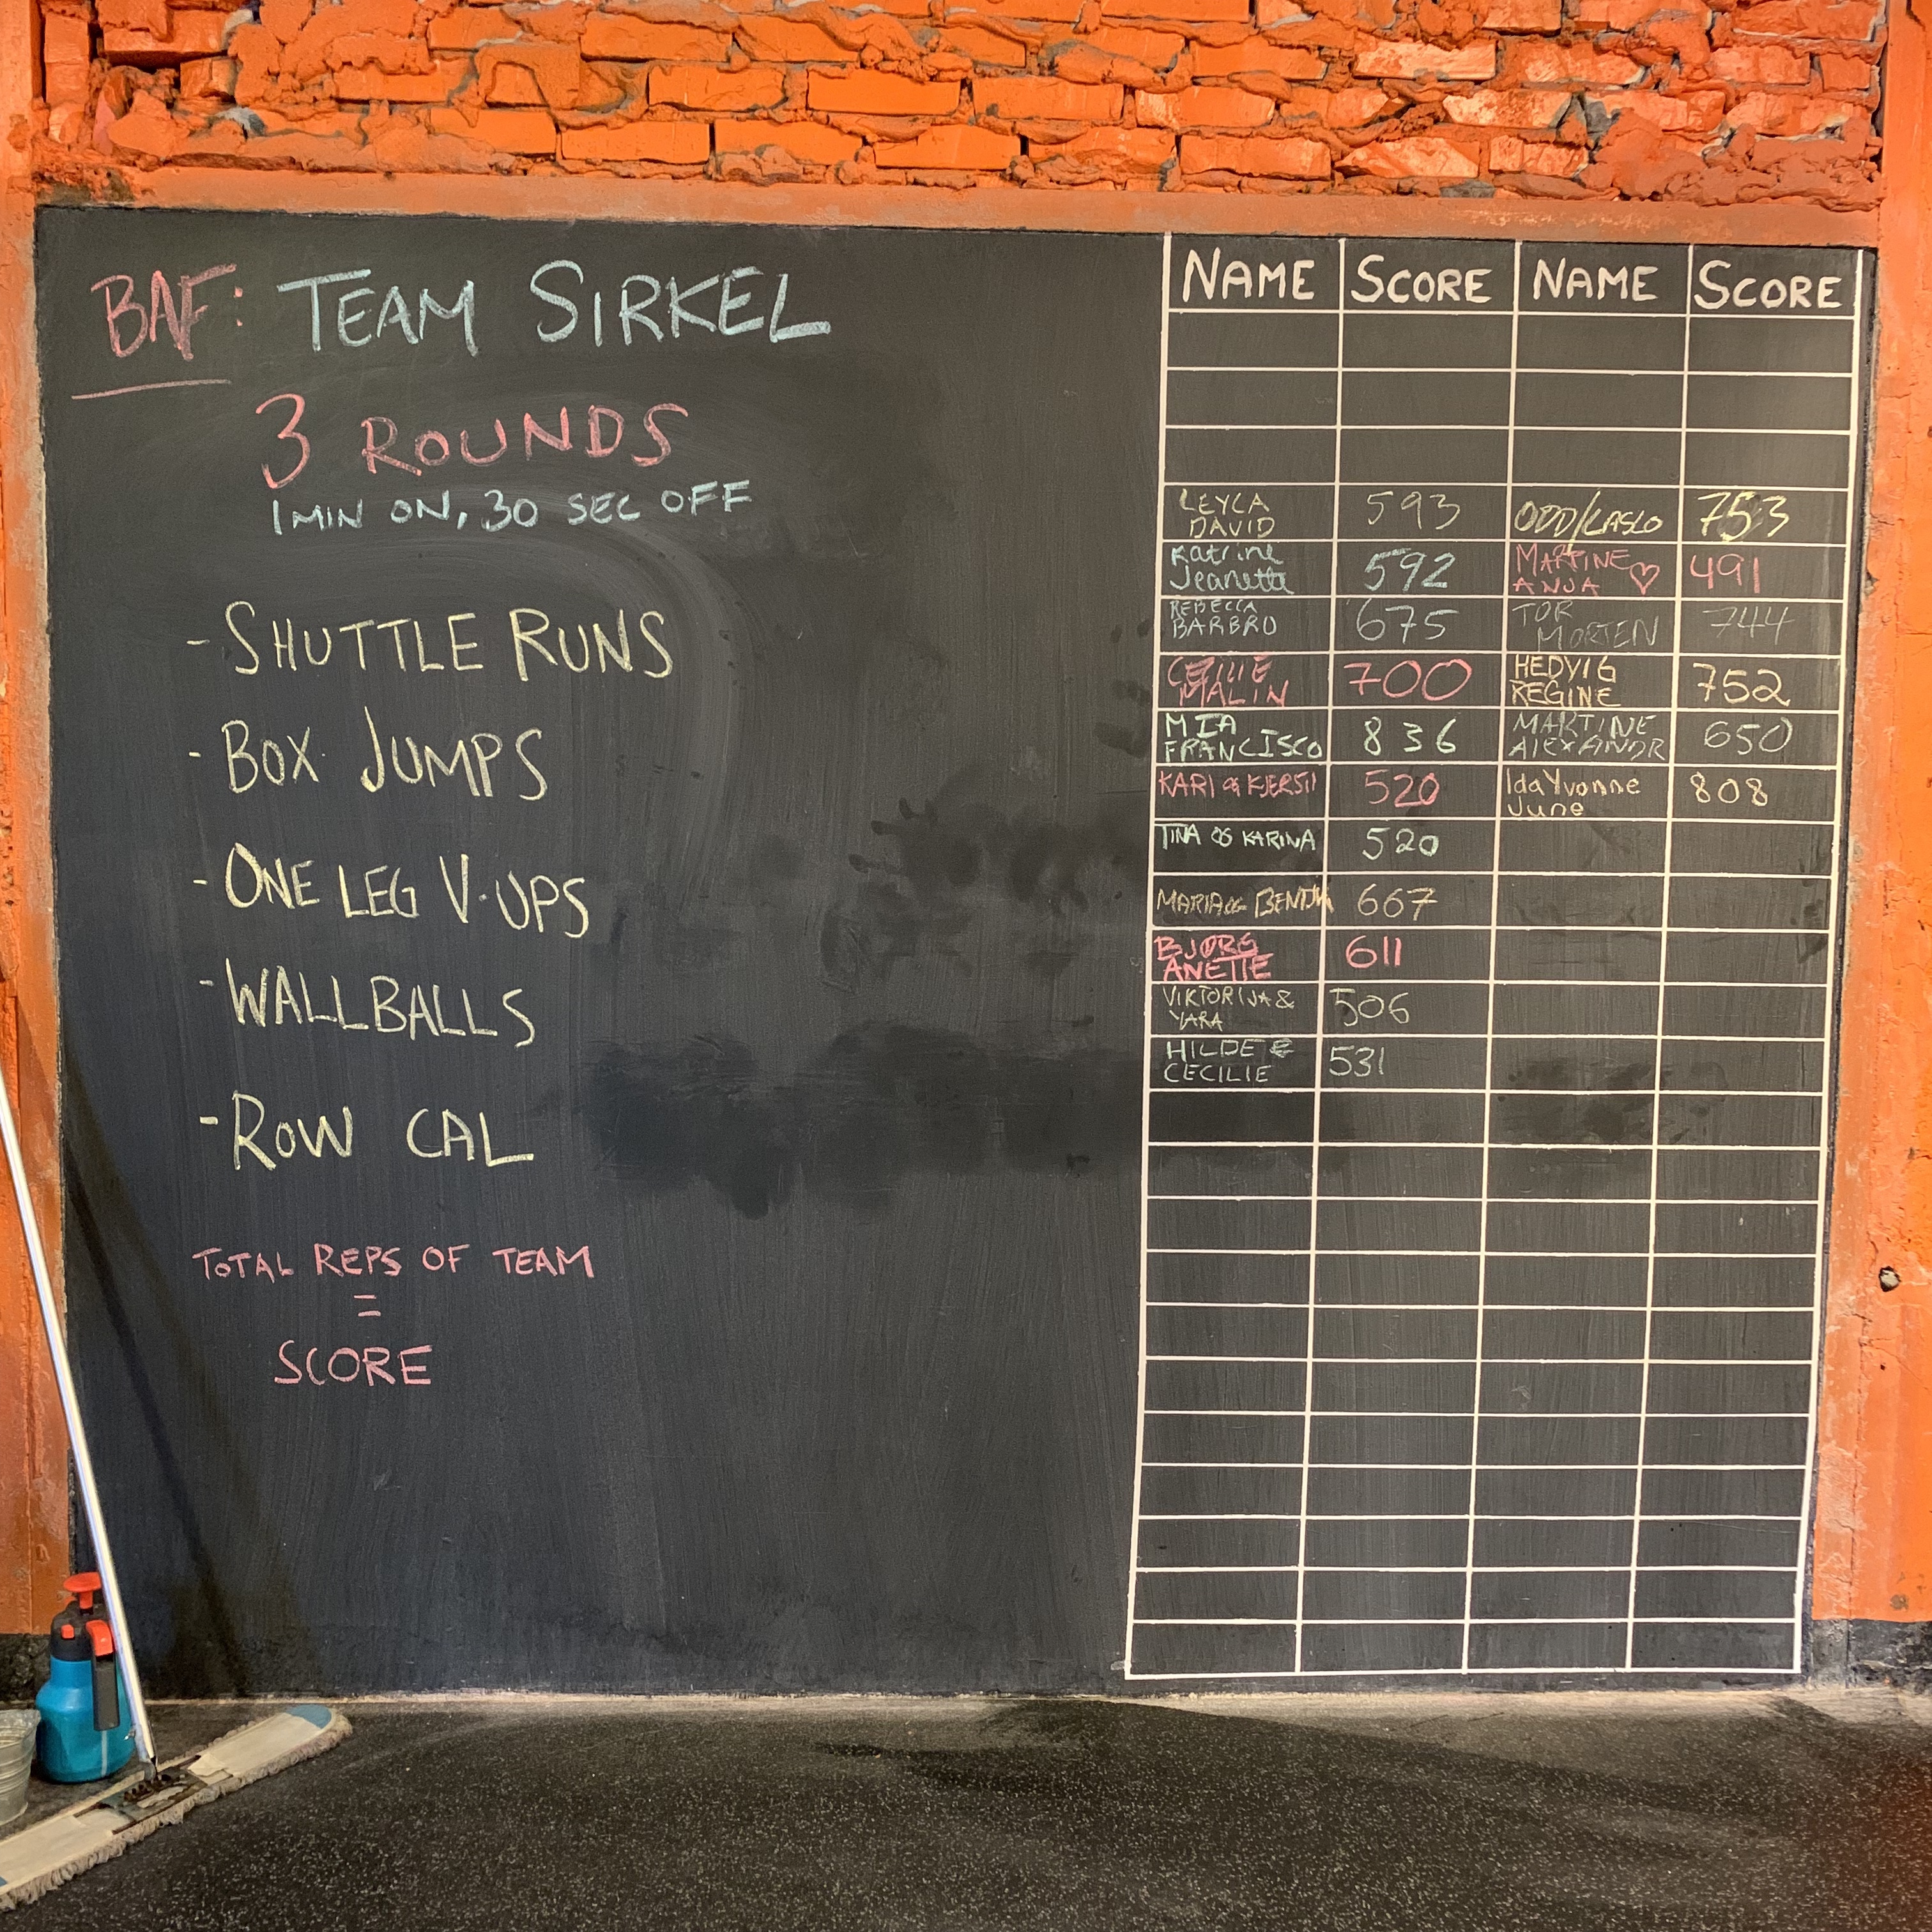 BAF: TEAM SIRKEL
3 ROUNDS
1 MIN ON, 30 SEC OFF
- SHUTTLE RUNS
- BOX JUMPS
- ONE LEG V-UPS
- WALLBALLS
- ROW CAL
TOTAL REPS OF TEAM
=
SCORE
NAME SCORE NAME SCORE
LEYLA
DAVID 593
ODD/LASLO 753
Katrine
Jeanette 592
MARTINE
ANJA ♡ 491
REBECCA
BARBRO 675
TOR
MORTEN 744
MALIN 700
HEDVIG
REGINE 752
MIA
FRANCISCO 836
MARTINE
ALEXANDR 650
KARI & KJERSTI 520
Ida Yvonne
June 808
TINA OG KARINA 520
MARIA OG 667
BJØRG
ANETTE 611
VIKTORIJA &
YARA 506
HILDE &
CECILIE 531